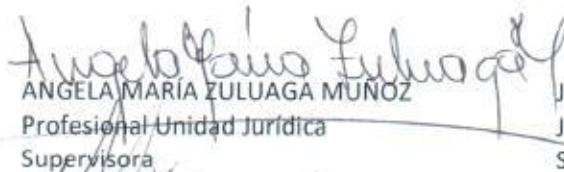 Angela María Zuluaga M
ANGELA MARÍA ZULUAGA MUÑOZ J
Profesional Unidad Jurídica J
Supervisora S